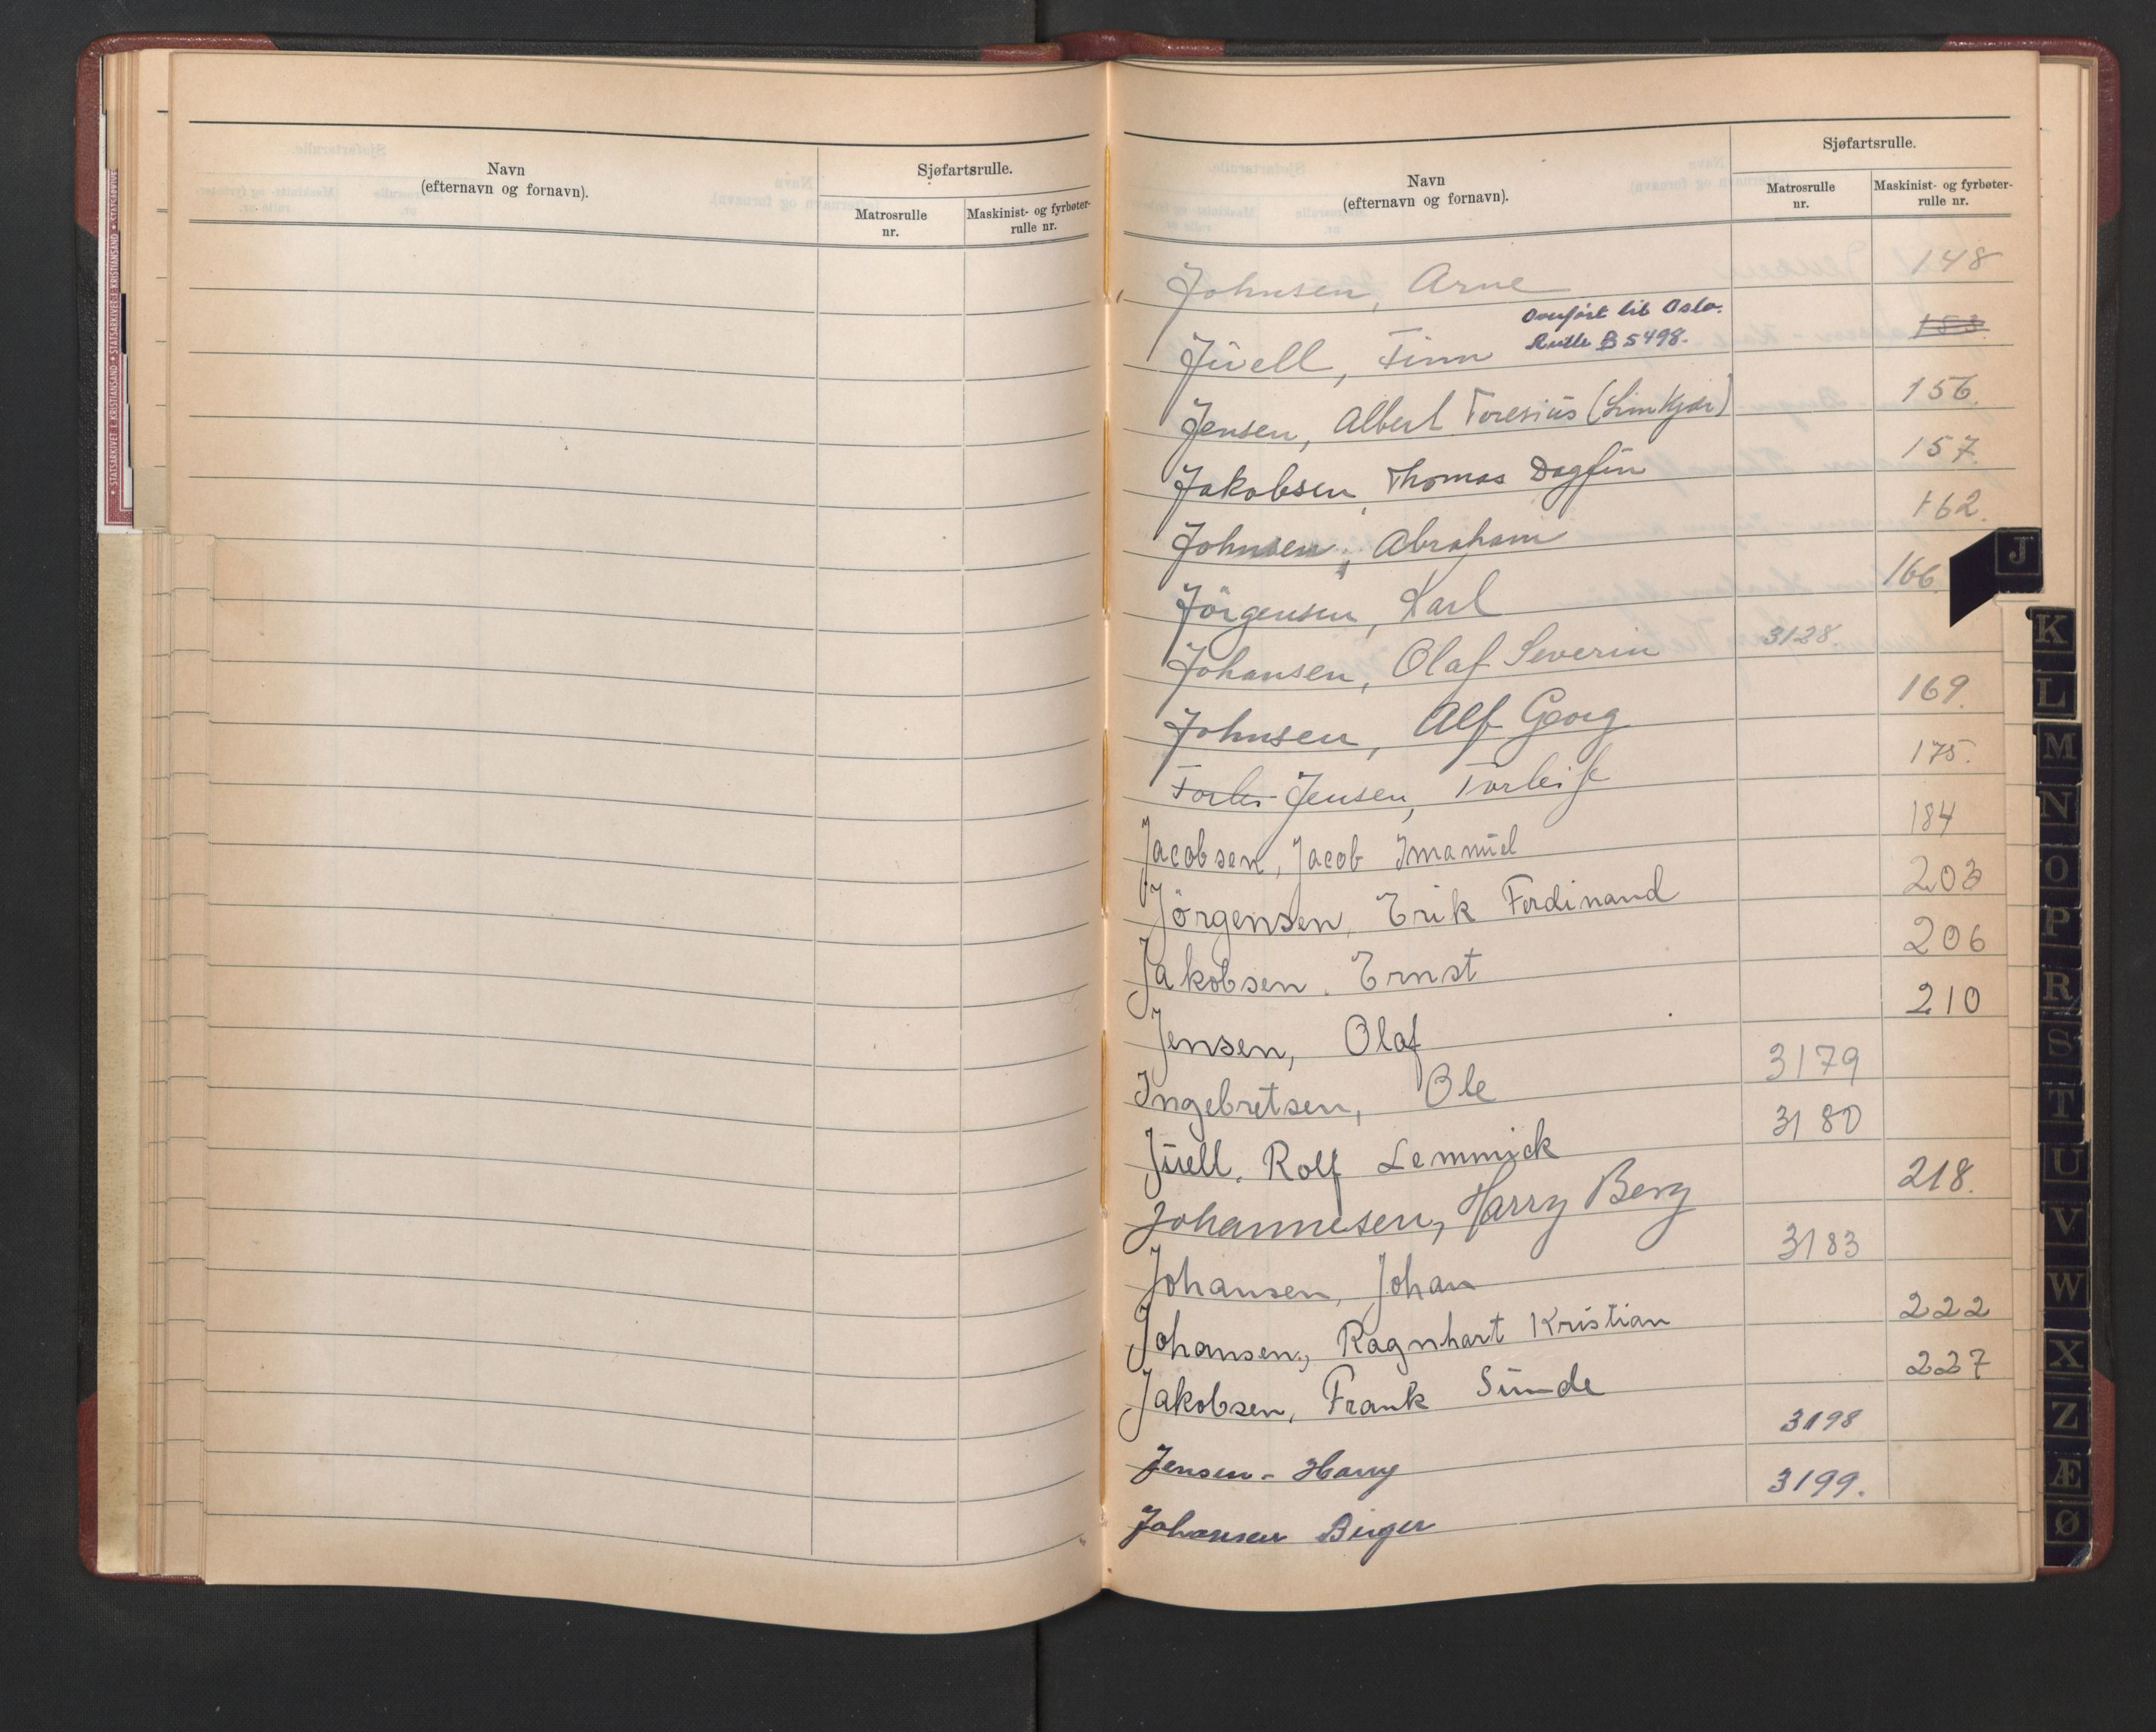 Navn
(efternavn og fornavn).
Sjøfartsrulle.
Matrosrulle
nr.
Maskinist- og fyrbøter-
rulle nr.
Navn
(efternavn og fornavn).
Sjøfartsrulle.
Matrosrulle
nr.
Maskinist- og fyrbøter-
rulle nr.
Johnsen, Arne 148
Overført til Oslo.
Rulle B 5498.
Jüell, Finn 153
Jensen, Albert Toresius (Limkjær) 156.
Jakobsen, Thomas Dagfin 157.
Johnsen, Abraham 162.
Jörgensen, Karl 166.
Johansen, Olaf Severin 3128.
Johnsen, Alf Georg 169.
Torlei Jensen, Torleif 175.
Jacobsen, Jacob Imanuel 184
Jörgensen, Erik Ferdinand 203
Jakobsen. Ernst 206
Jensen, Olaf 210
Ingebretsen, Ole 3179
Jüell, Rolf Lemmick 3180
Johannesen, Harry Berg 218.
Johansen, Johan 3183
Johansen, Ragnhart Kristian 222
Jakobsen, Frank Sunde 227
Jensen - Harry 3198
Johansen Birger 3199.
J
K
L
M
N
O
P
R
S
T
U
V
W
X
Z
Æ
Ø
STATSARKIVET I KRISTIANSAND • STATSARKIVET I KRISTIANSAND • STATSARKIVET